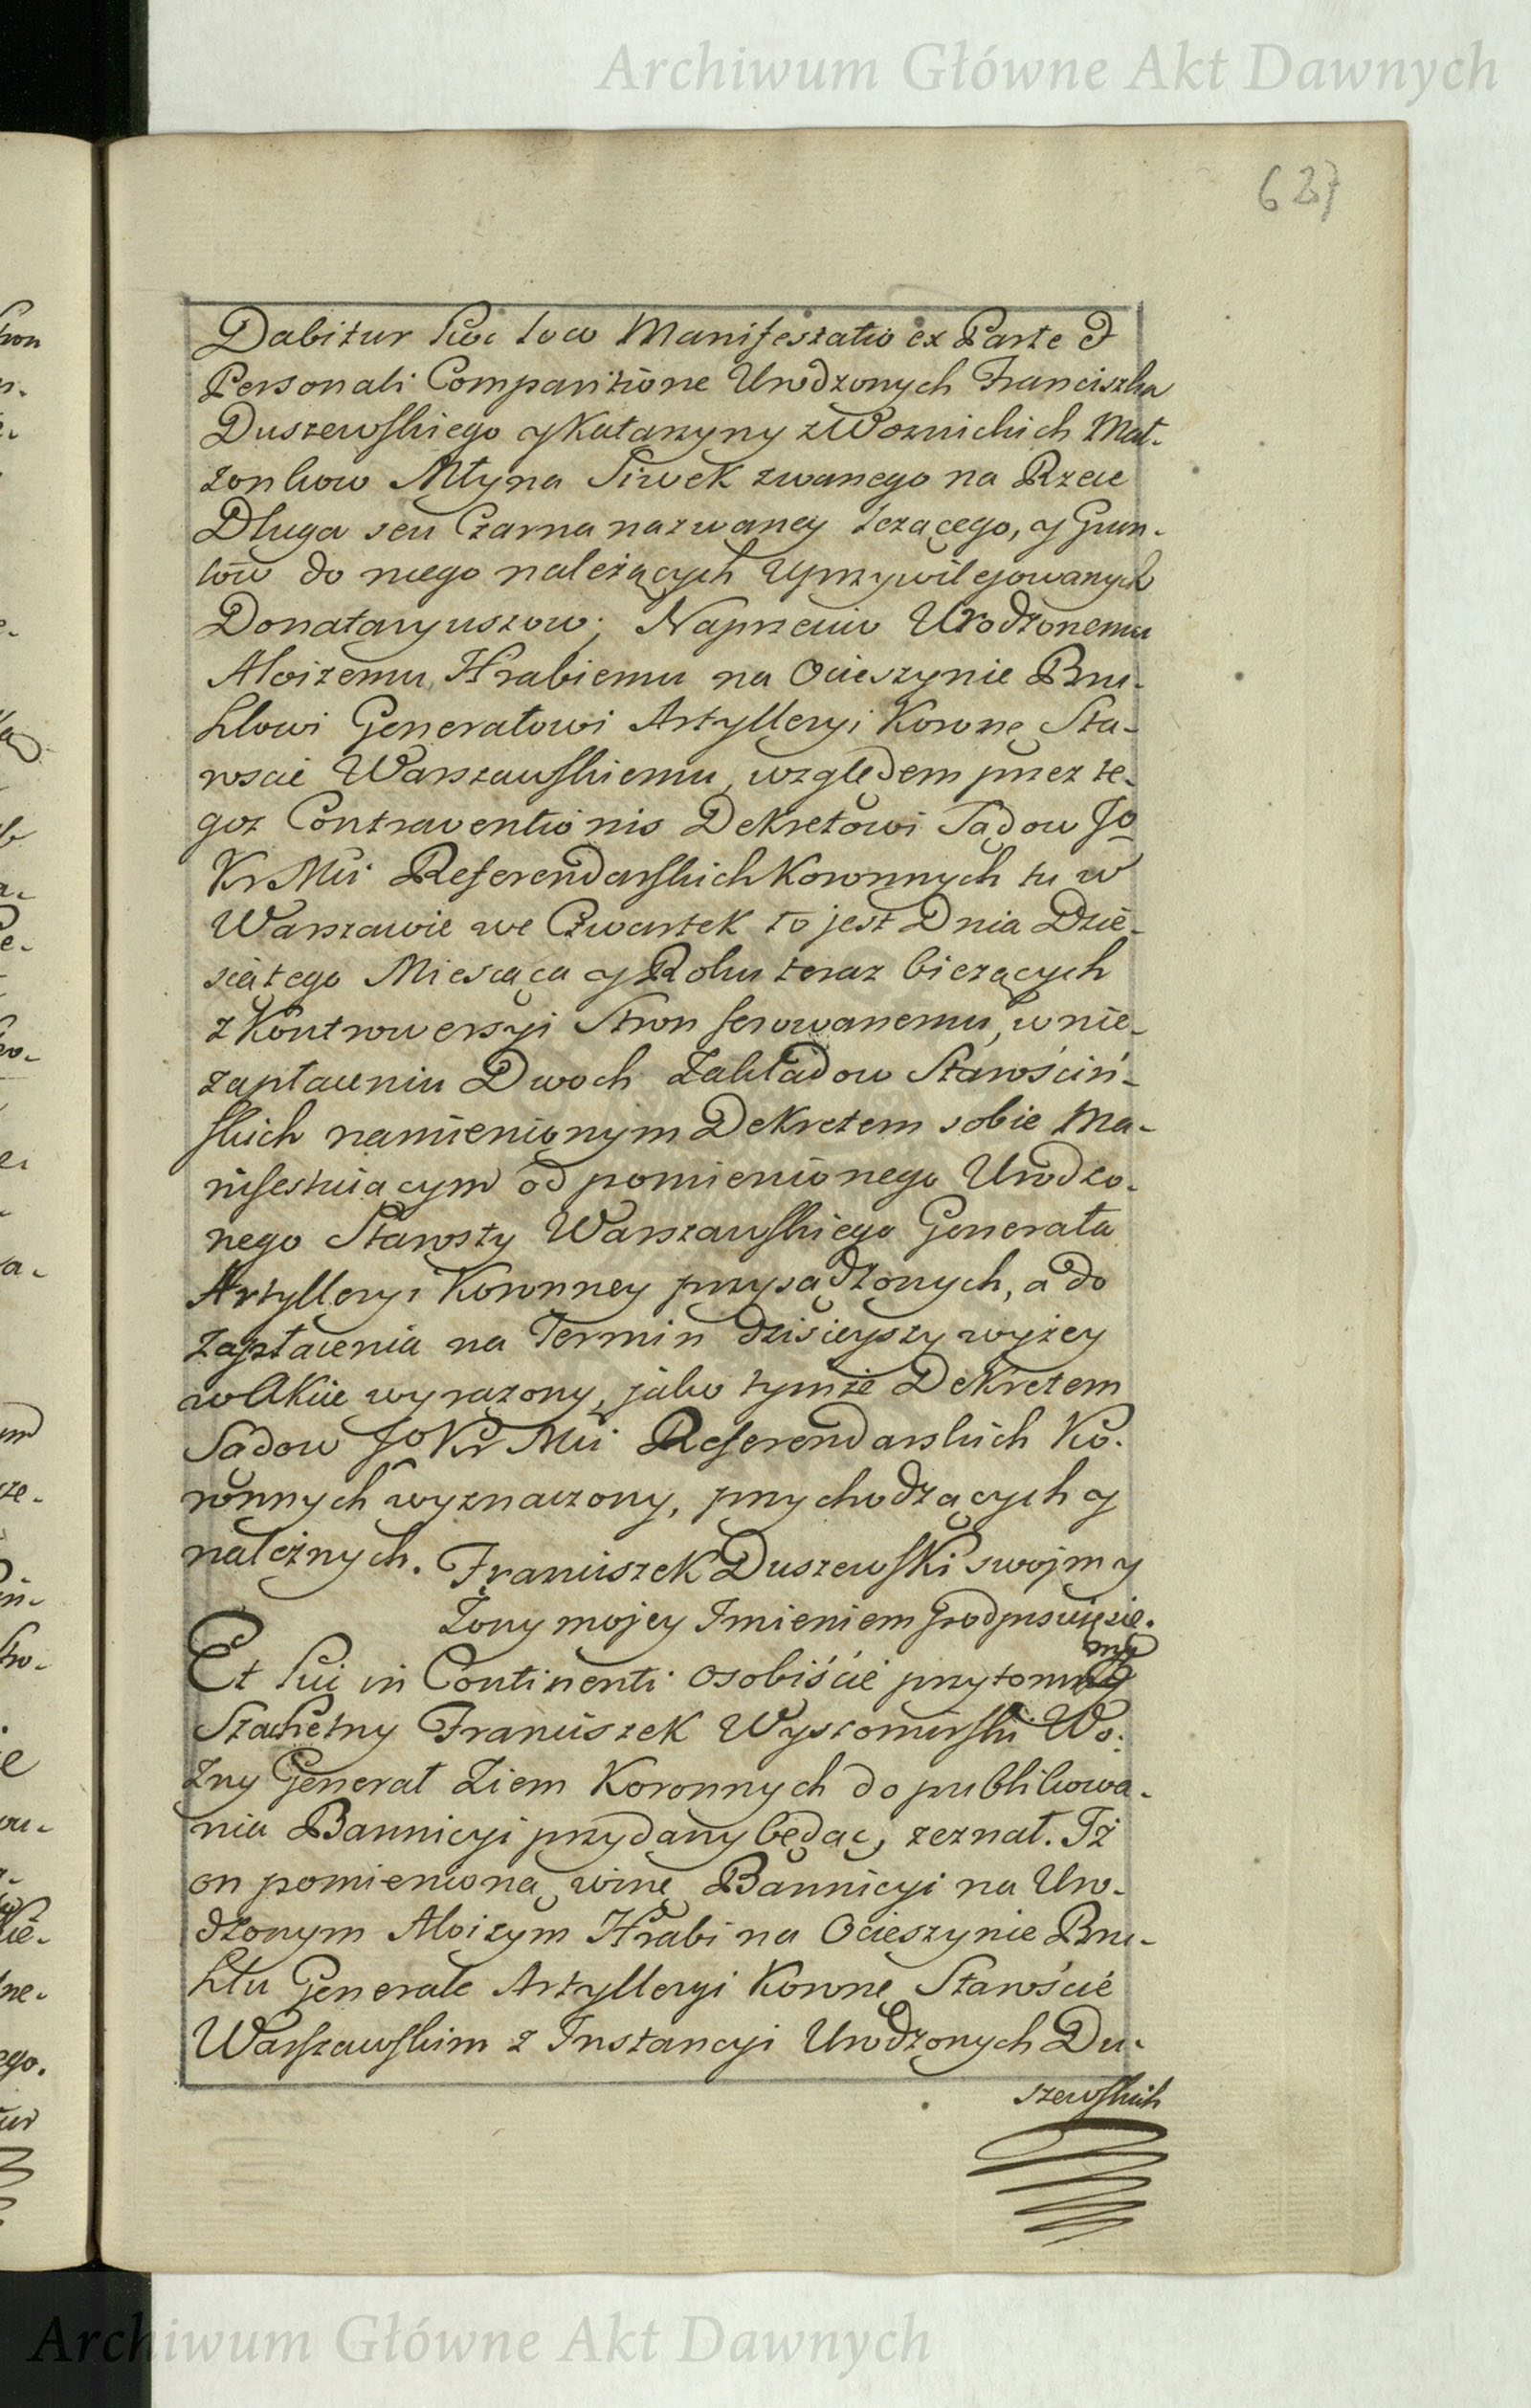 Archiwum Główne Akt Dawnych
627
Dabitur hoc loco Manifestatio ex Parte &
Personali Comparitione Urodzonych Franciszka
Duszewskiego y Katarzyny z Woznickich Mał-
zonkow Młyna Siwek zwanego na Rzece
Dluga seu Czarna nazwaney lezącego, y Grun-
tow do niego należących Uprzywilejowanych
Donataryuszow; Naprzeciw Urodzonemu
Aloizemu Hrabiemu na Ocieszynie Bru-
hlowi Generałowi Artylleryi Koronę Sta-
roscie Warszawskiemu, względem przez te-
goz Contraventionis Dekretowi Sądow Jo
Kr Mci Referendarskich Koronnych tu w
Warszawie we Czwartek to jest Dnia Dzie-
siątego Miesiąca y Roku teraz biezących
z Kontrowersyi Stron ferowanemu, w nie-
zapłaceniu Dwoch Zakładow Starościń-
skich namienionym Dekretem sobie Ma-
nifestuiącym od pomienionego Urodzo-
nego Starosty Warszawskiego Generała
Artylleryi Koronney przysądzonych, a do
zapłacenia na Termin dzisieyszy wyżey
w Akcie wyrazony, jako tymże Dekretem
Sądow Jo Kr Mci Referendarskich Ko-
ronnych wyznaczony, przychodzących y
należnych. Franciszek Duszewski swojm y
Zony mojey Imieniem podpisuię się.
Et hic in Continenti osobiście przytomny
Szachetny Franciszek Wyszomirski Wo-
zny Generał Ziem Koronnych do publikowa-
nia Bannicyi przydany będąc, zeznał. Iż
on pomienioną winę Bannicyi na Uro-
dzonym Aloizym Hrabi na Ocieszynie Bru-
hlu Generale Artylleryi Koronę Starościé
Warszawskim z Instancyi Urodzonych Du-
szewskich
Archiwum Główne Akt Dawnych